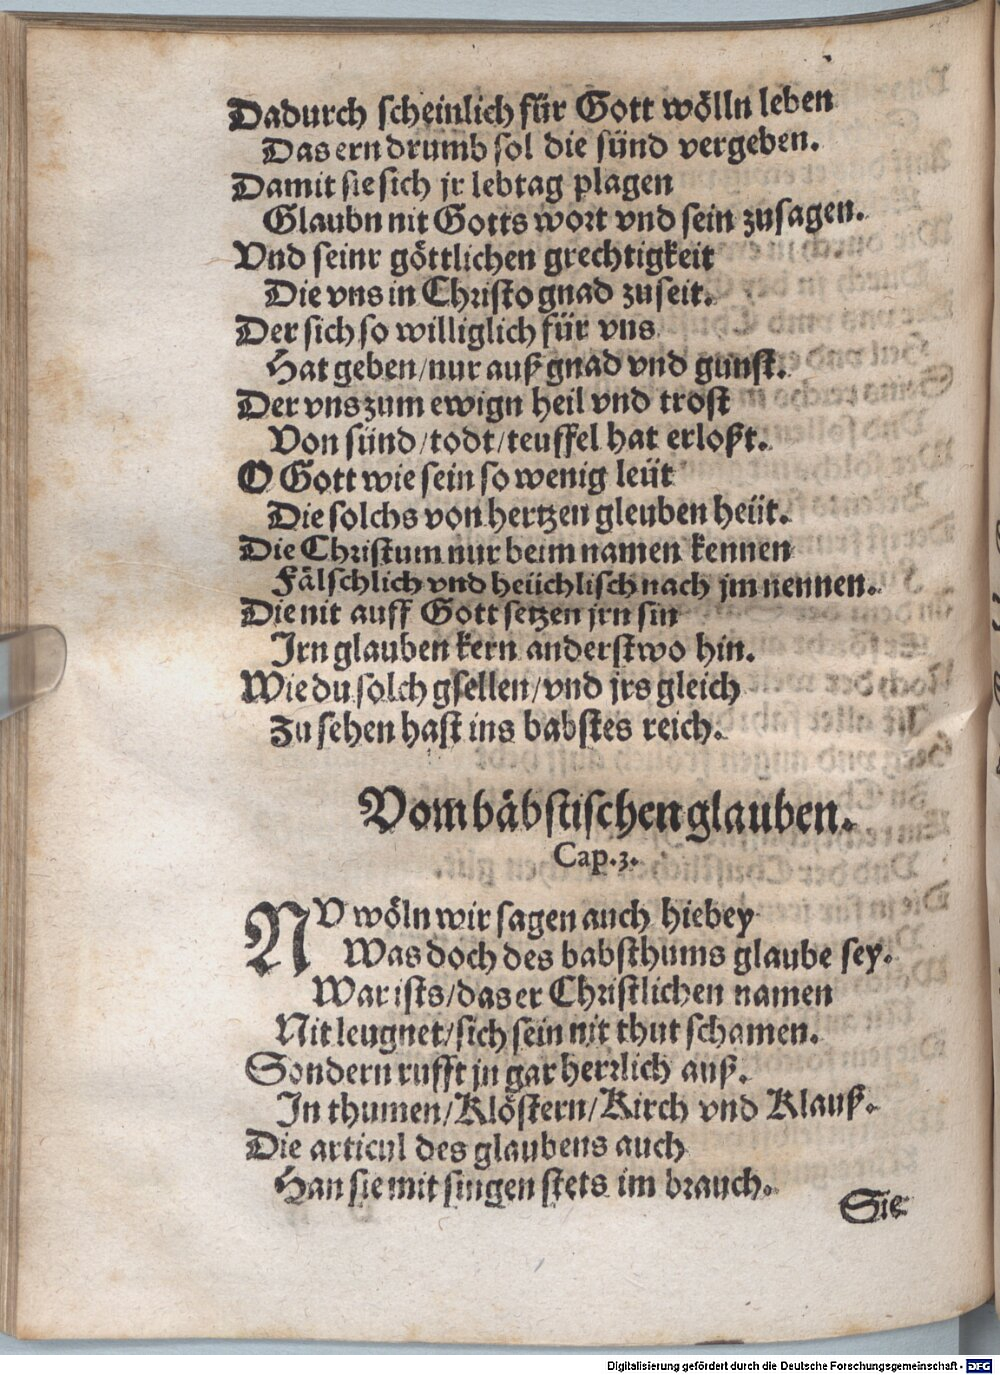 Dadurch scheinlich für Gott wölln leben
Das ern drumb sol die sünd vergeben.
Damit sie sich jr lebtag plagen
Glaubn nit Gotts wort vnd sein zusagen.
Vnd seinr göttlichen grechtigkeit
Die vns in Christo gnad zuseit.
Der sich so williglich für vns
Hat geben/nur auß gnad vnd gunst.
Der vns zum ewign heil vnd trost
Von sünd/todt/teuffel hat erloßt.
O Gott wie sein so wenig leüt
Die solchs von hertzen gleuben heüt.
Die Christum nur beim namen kennen
Fälschlich vnd heüchlisch nach jm nennen.
Die nit auff Gott setzen jrn sin
Irn glauben kern anderstwo hin.
Wie du solch gsellen/vnd jrs gleich
Zu sehen hast ins babstes reich.
Vom bäbstischen glauben.
Cap.3.
NV wöln wir sagen auch hiebey
Was doch des babsthums glaube sey.
War ists/das er Christlichen namen
Nit leugnet/sich sein nit thut schamen.
Sondern rufft jn gar herrlich auß.
In thumen/Klöstern/Kirch vnd Klauß.
Die articul des glaubens auch
Han sie mit singen stets im brauch.
Sie
Digitalisierung gefördert durch die Deutsche Forschungsgemeinschaft - DFG